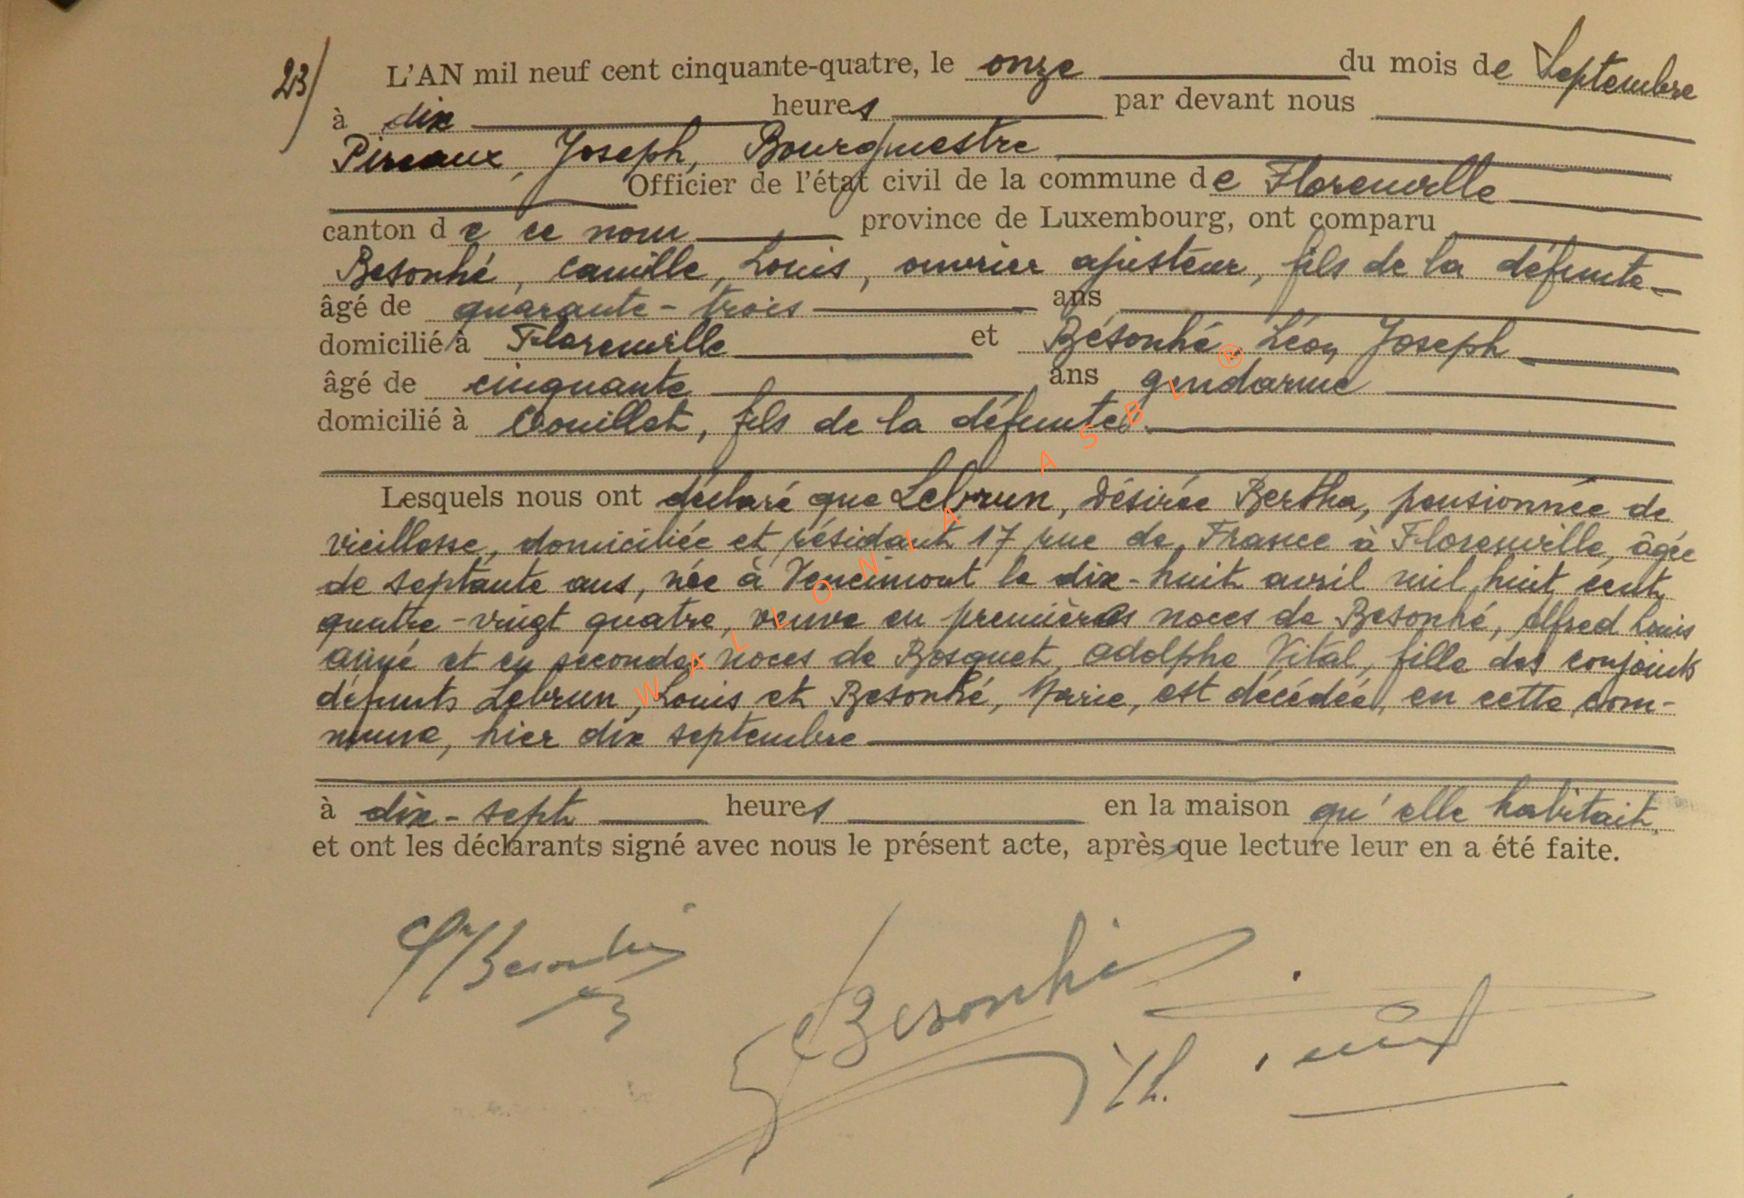 23/ L'AN mil neuf cent cinquante-quatre, le onze du mois de Septembre
à dix heures par devant nous
Pireaux, Joseph, Bourgmestre
Officier de l'état civil de la commune de Florenville
canton de ce nom province de Luxembourg, ont comparu
Besonhé, Camille, Louis, ouvrier ajusteur, fils de la défunte
âgé de quarante-trois ans
domicilié à Florenville et Besonhé Léon Joseph
âgé de cinquante ans gendarme
domicilié à Couillet, fils de la défunte.
Lesquels nous ont déclaré que Lebrun, Désirée Bertha, pensionnée de
vieillesse, domiciliée et résidant 17 rue de France à Florenville, âgée
de septante ans, née à Vencimont le dix-huit avril mil huit cent
quatre-vingt quatre, veuve en premières noces de Besonhé, Alfred Louis
Aimé et en secondes noces de Bosquet, Adolphe Vital, fille des conjoints
défunts Lebrun, Louis et Besonhé, Marie, est décédée, en cette com-
mune, hier dix septembre
à dix-sept heures en la maison qu'elle habitait
et ont les déclarants signé avec nous le présent acte, après que lecture leur en a été faite.
Besonhé
Besonhé
WALLONIA ASBL ®